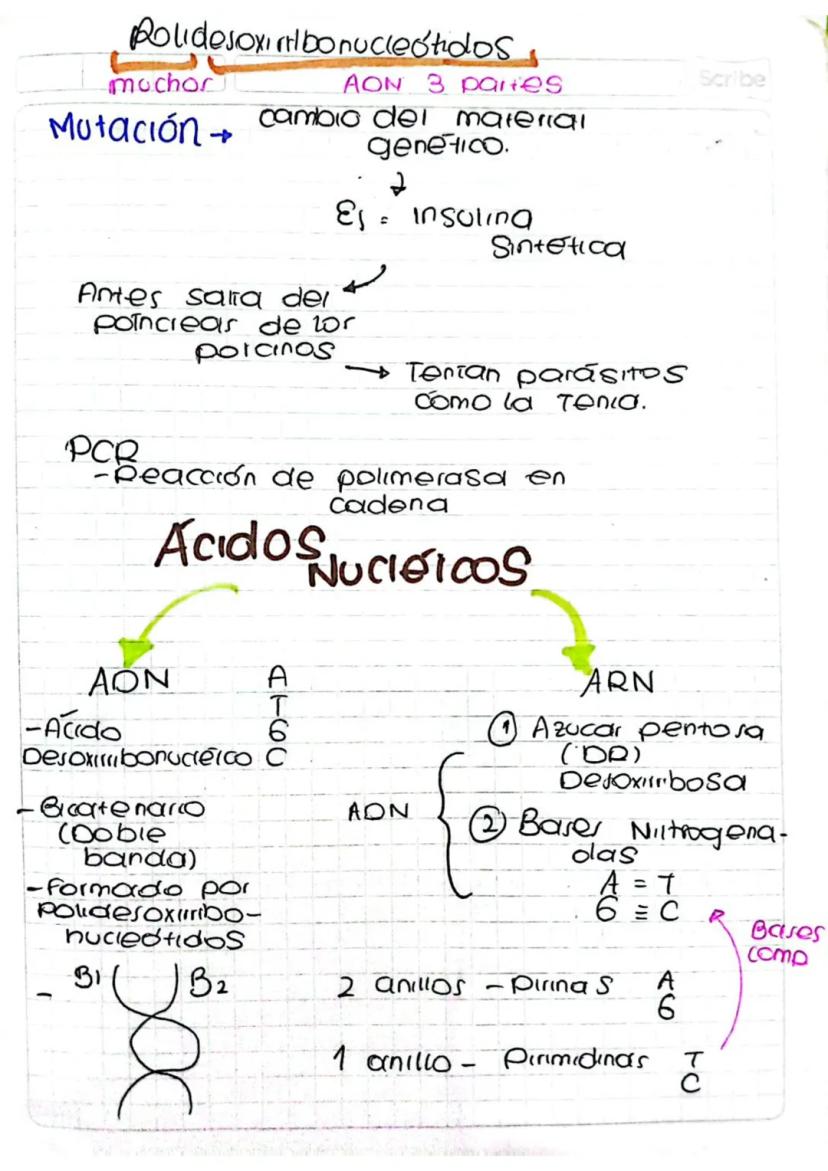 Polidesoxirribonucleótidos
muchos
ADN 3 partes
Scribe
Mutación → cambio del material
genético.
Ej = insulina
Sintética
Antes salía del
páncreas de los
porcinos
→ Tenían parásitos
como la Tenia.
PCR
-Reacción de polimerasa en
cadena
Ácidos
Nucléicos
ADN
A
T
G
C
-Ácido
Desoxirribonucléico
- Bicatenario
(Doble
banda)
-Formado por
polidesoxirribo-
nucleótidos
- B1 B2
ARN
① Azucar pentosa
(DR)
Desoxirribosa
ADN
② Bases Nitrogena-
das
A = T
G ≡ C
Bases
comp
2 anillos - Pirinas A
G
1 anillo - Pirimidinas T
C